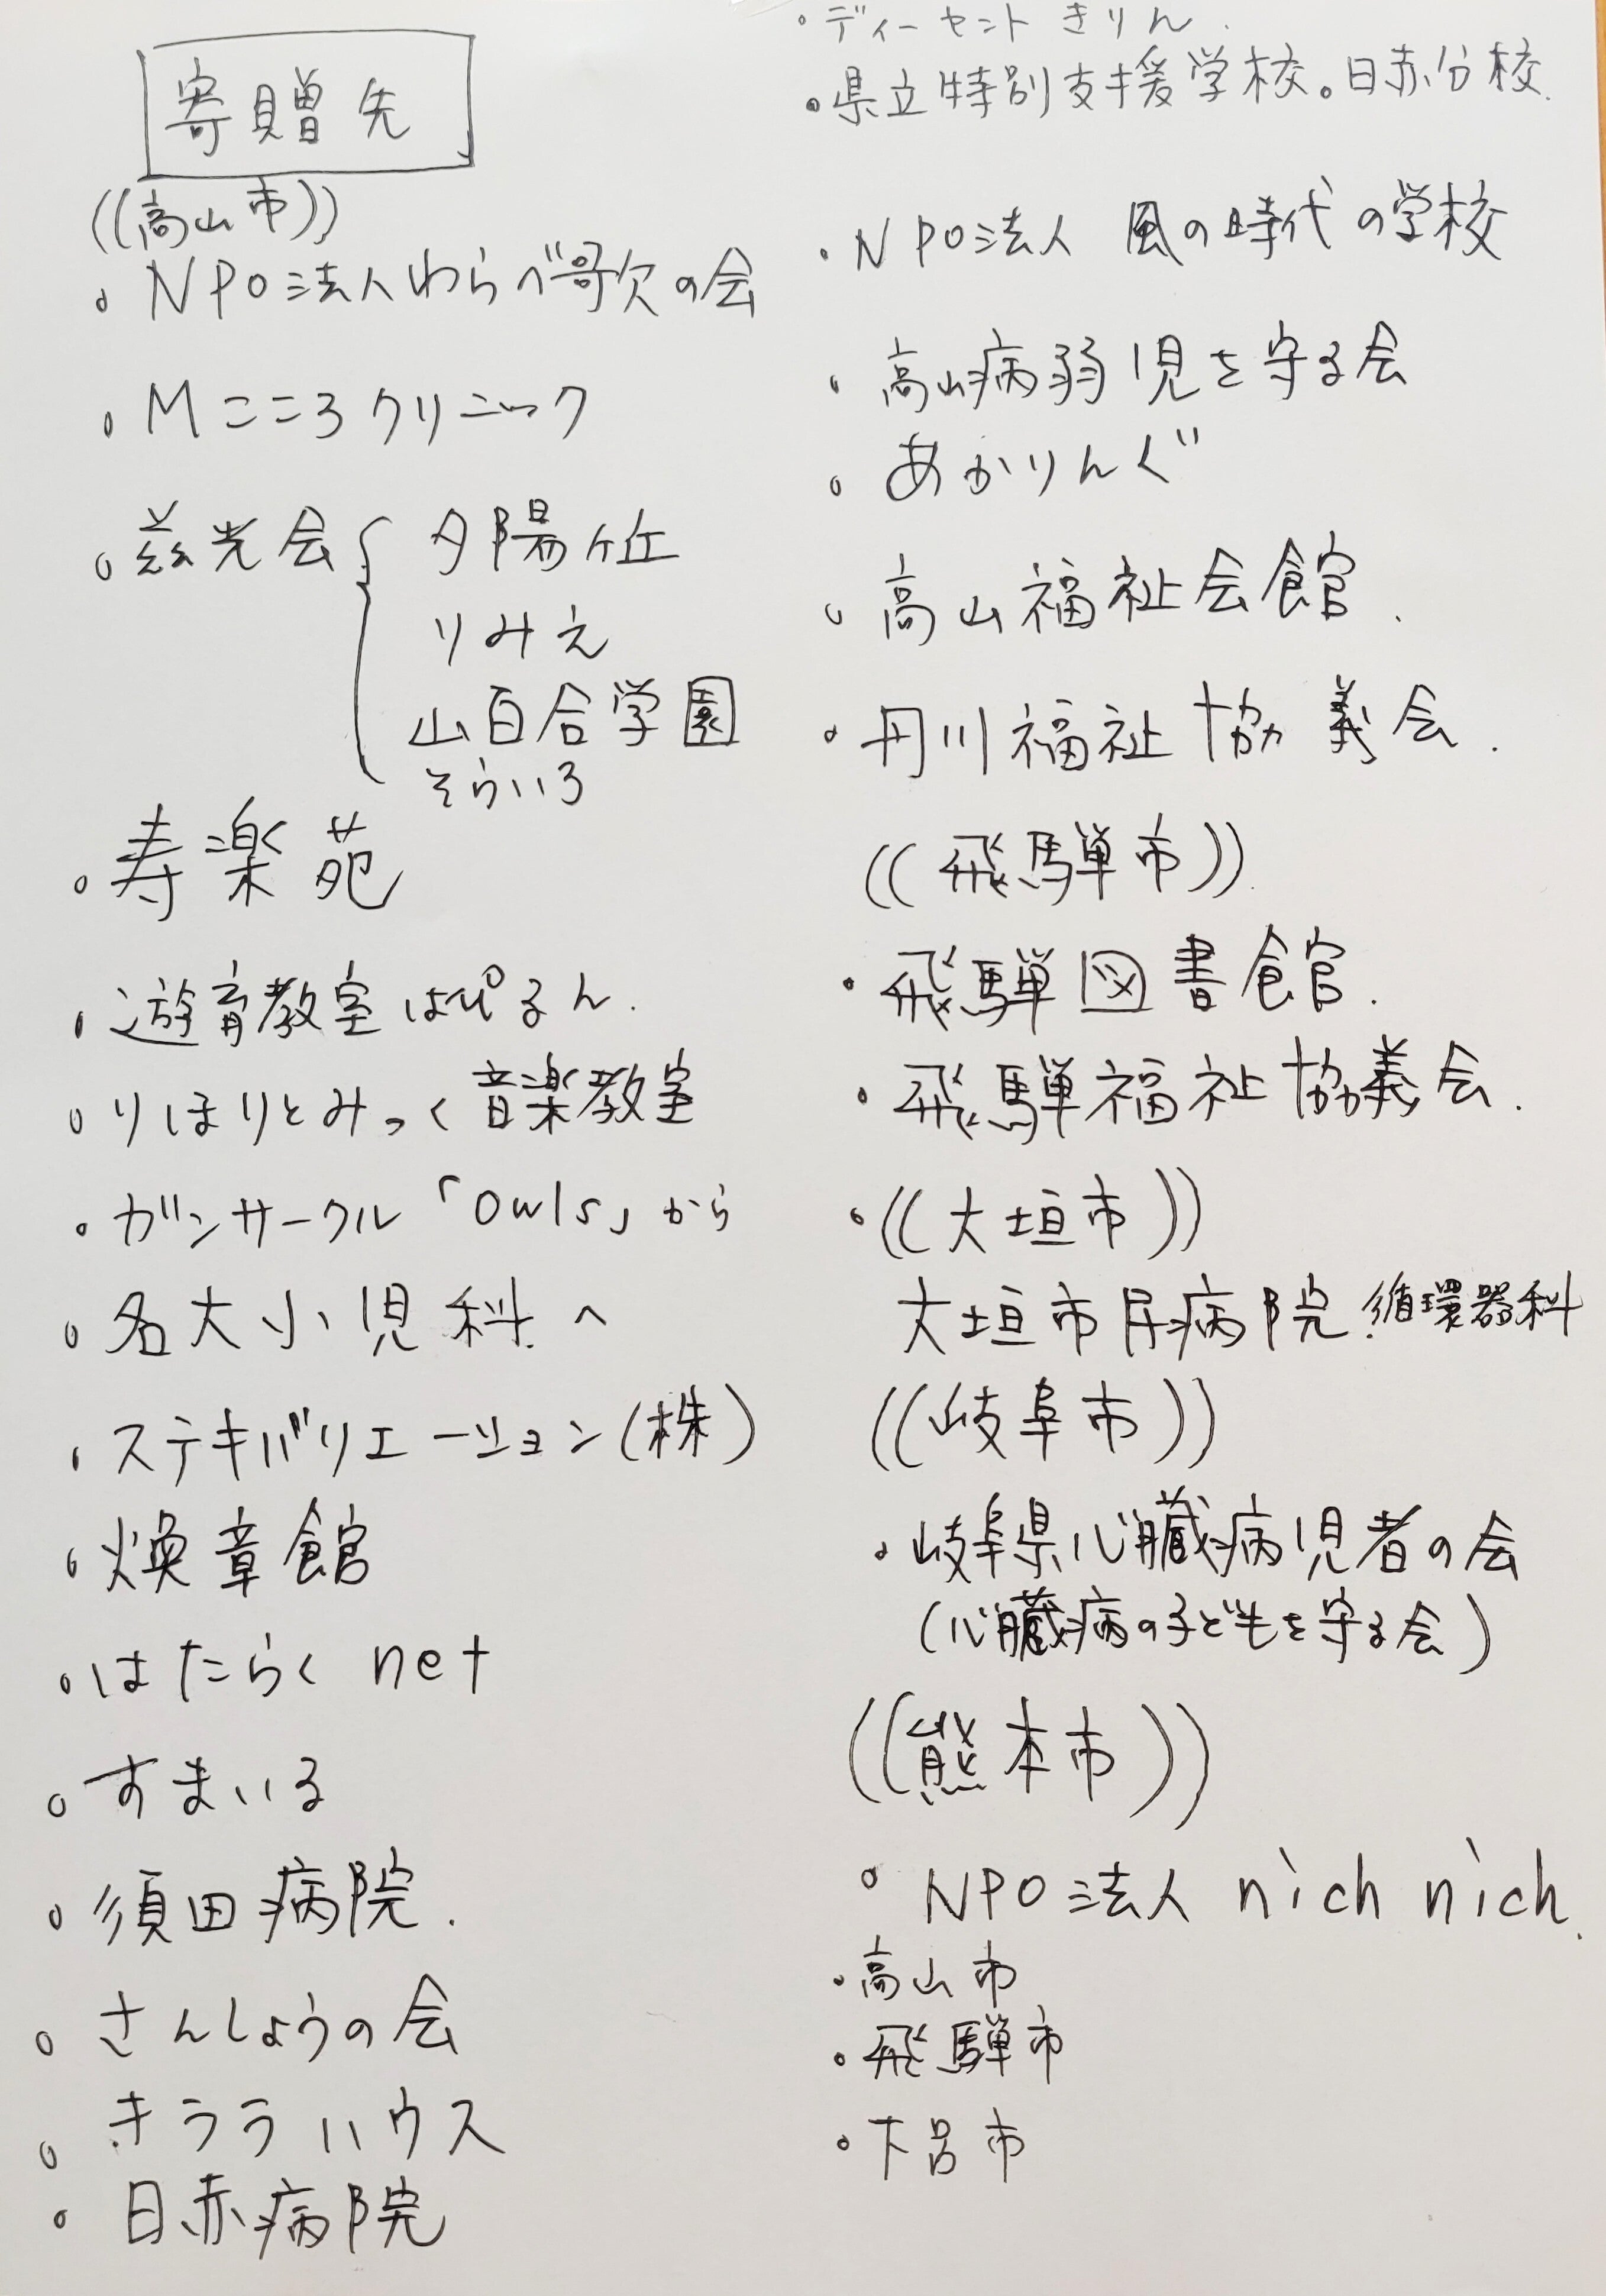 寄贈先
((高山市))
・NPO法人わらべ歌の会
・Mこころクリニック
・慈光会{夕陽ヶ丘
りみえ
山百合学園
そらいろ
・寿楽苑
・遊育教室はぴるん.
・りほりとみっく音楽教室
・ガンサークル「Owls」から
・名大小児科へ
・ステキバリエーション(株)
・煥章館
・はたらくnet
・すまいる
・須田病院.
・さんしょうの会
・きララハウス
・日赤病院
・ディーセントきりん.
・県立特別支援学校。日赤分校.
・NPO法人 風の時代の学校
・高山病弱児を守る会
・あかりんぐ
・高山福祉会館.
・丹川福祉協義会.
((飛騨市)).
・飛騨図書館.
・飛騨福祉協義会.
・((大垣市))
大垣市民病院.循環器科
((岐阜市))
・岐阜県心臓病児者の会
(心臓病の子どもを守る会)
((熊本市))
・NPO法人 nich nich.
・高山市
・飛騨市
・下呂市